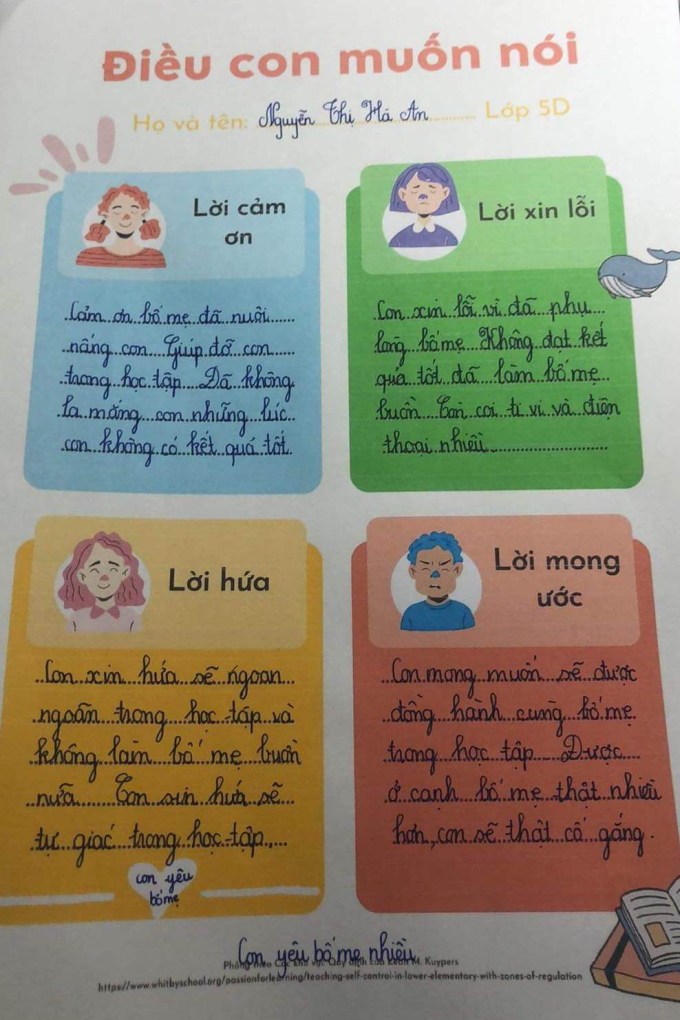 Điều con muốn nói
Họ và tên: Nguyễn Thị Hà An Lớp 5D
Lời cảm
ơn
Cảm ơn bố mẹ đã nuôi
nấng con Giúp đỡ con
trong học tập Đã không
la mắng con những lúc
con không có kết quả tốt.
Lời xin lỗi
Con xin lỗi vì đã phụ
lòng bố mẹ Không đạt kết
quả tốt đã làm bố mẹ
buồn Còn coi ti vi và điện
thoại nhiều
Lời hứa
Con xin hứa sẽ ngoan
ngoãn trong học tâp và
không làm bố mẹ buồn
nữa Con xin hứa sẽ
tự giác trong học tập
con yêu
bố mẹ
Lời mong
ước
Con mong muốn sẽ được
đồng hành cung bố mẹ
trong học tập Được
ở cạnh bố mẹ thật nhiều
hơn, con sẽ thật cố gắng.
Con yêu bố mẹ nhiều
Phỏng theo M. Kuypers
https://www.whitbyschool.org/passionforlearning/teaching-self-control-in-lower-elementary-with-zones-of-regulation